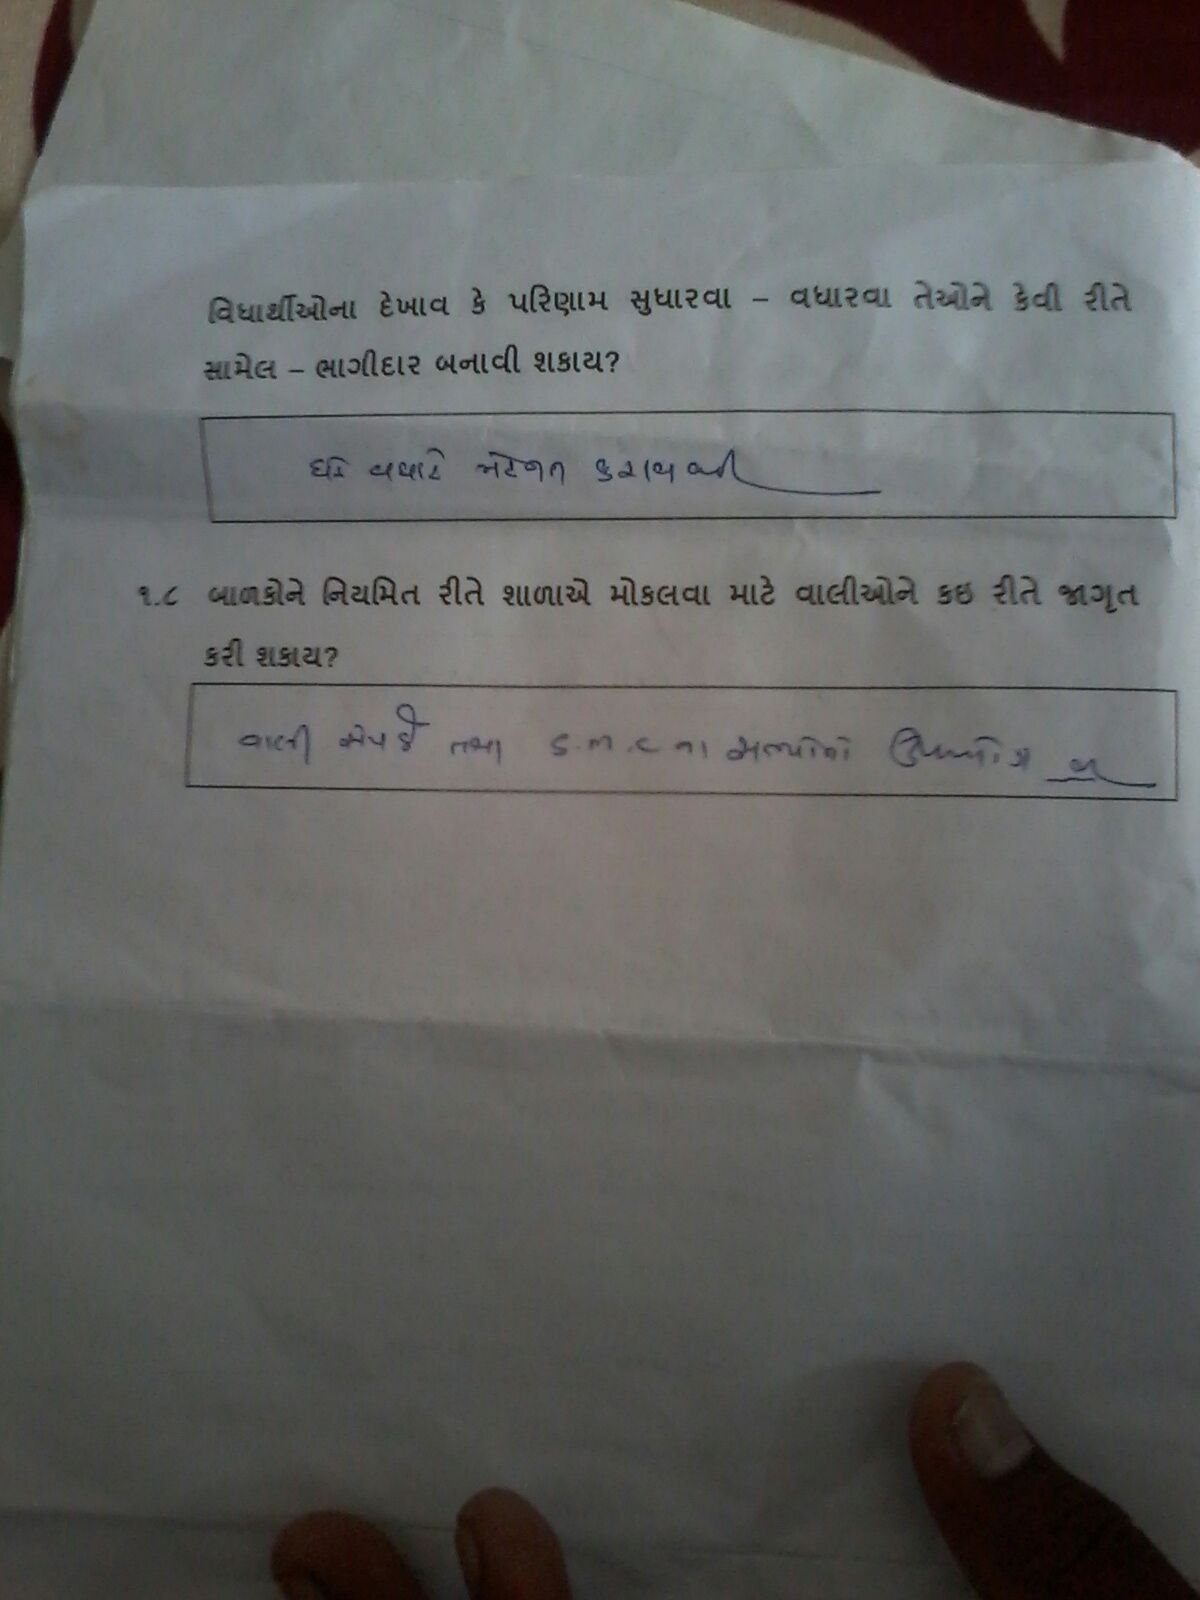 વિધાર્થીઓના દેખાવ કે પરિણામ સુધારવા – વધારવા તેઓને કેવી રીતે
સામેલ – ભાગીદાર બનાવી શકાય?
ઘરે વધારે મહેનત કરાવવી
૧.૮ બાળકોને નિયમિત રીતે શાળાએ મોકલવા માટે વાલીઓને કઇ રીતે જાગૃત
કરી શકાય?
વાલી સંપર્ક તથા S.M.C ના સભ્યોનો ઉપયોગ